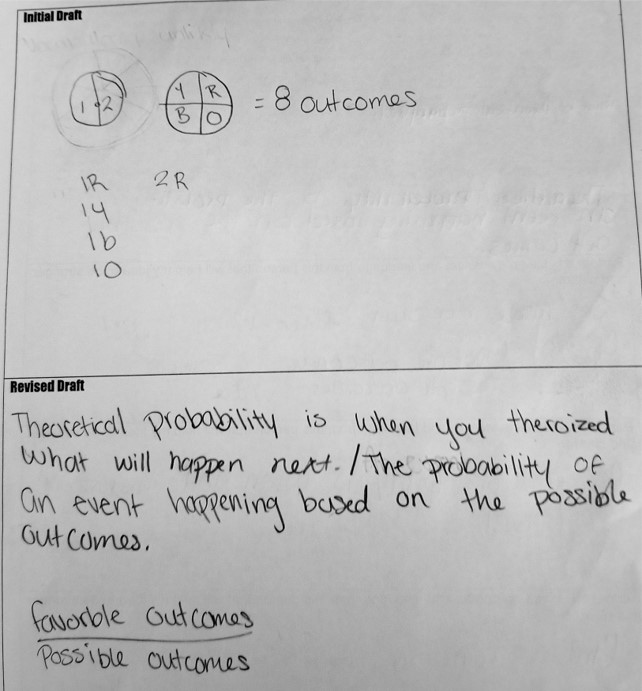 Initial Draft
1 2 Y R = 8 outcomes
B O
1R 2R
1Y
1b
1O
Revised Draft
Theoretical probability is when you theroized
what will happen next. / The probability of
an event happening based on the possible
outcomes.
favorble outcomes
Possible outcomes